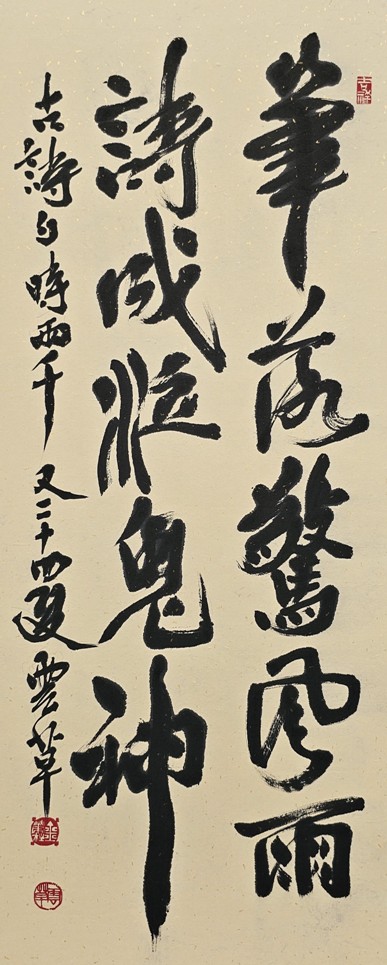 筆落驚風雨
詩成泣鬼神
古詩句時兩千又二十四夏雲草